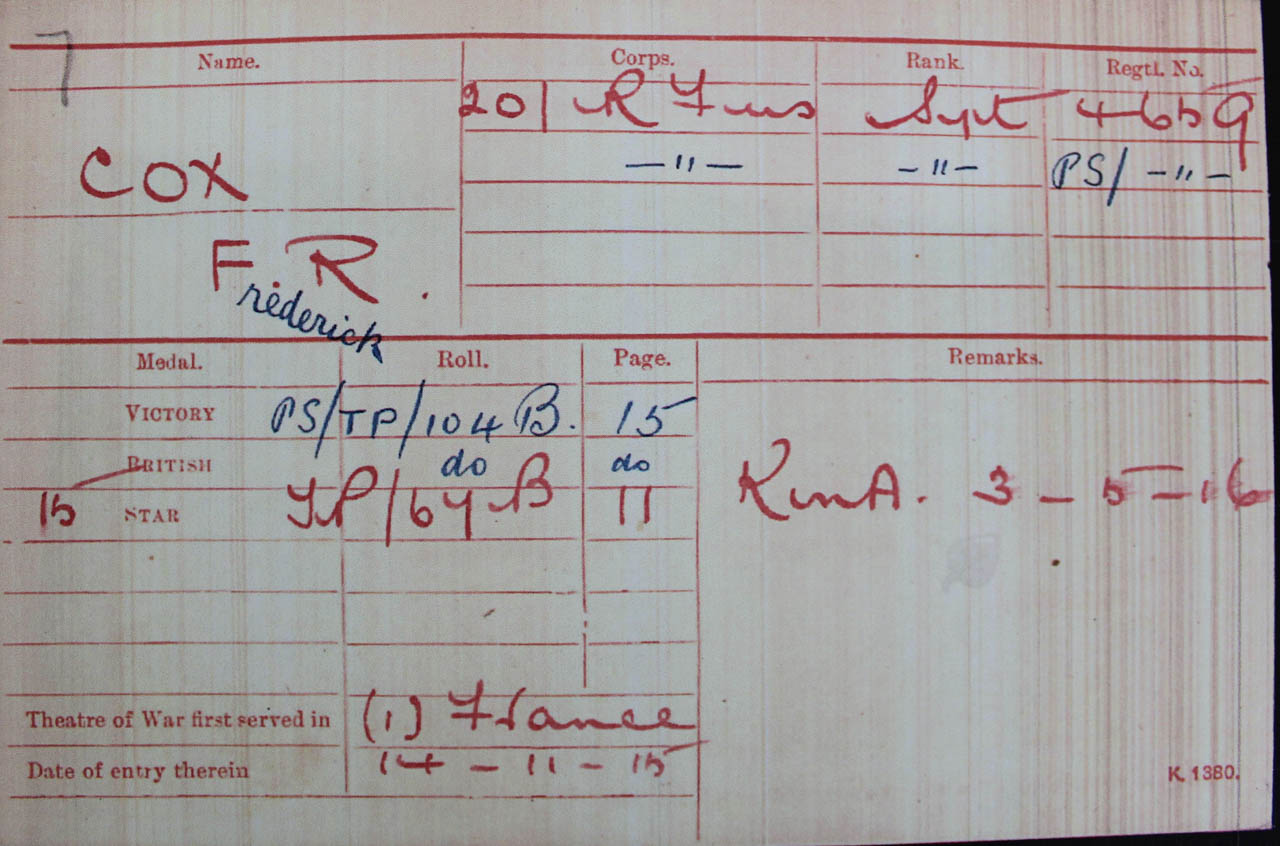 7
Name. Corps. Rank. Regtl. No.
20/ R Fus Sgt 4659
COX —"— —"— PS/ —"—
F. R.
Frederick
Medal. Roll. Page. Remarks.
VICTORY PS/TP/104 B. 15
BRITISH do do
15 STAR TP/67 B 11 K in A. 3-5-16
Theatre of War first served in (1) France
Date of entry therein 14-11-15
K. 1380.